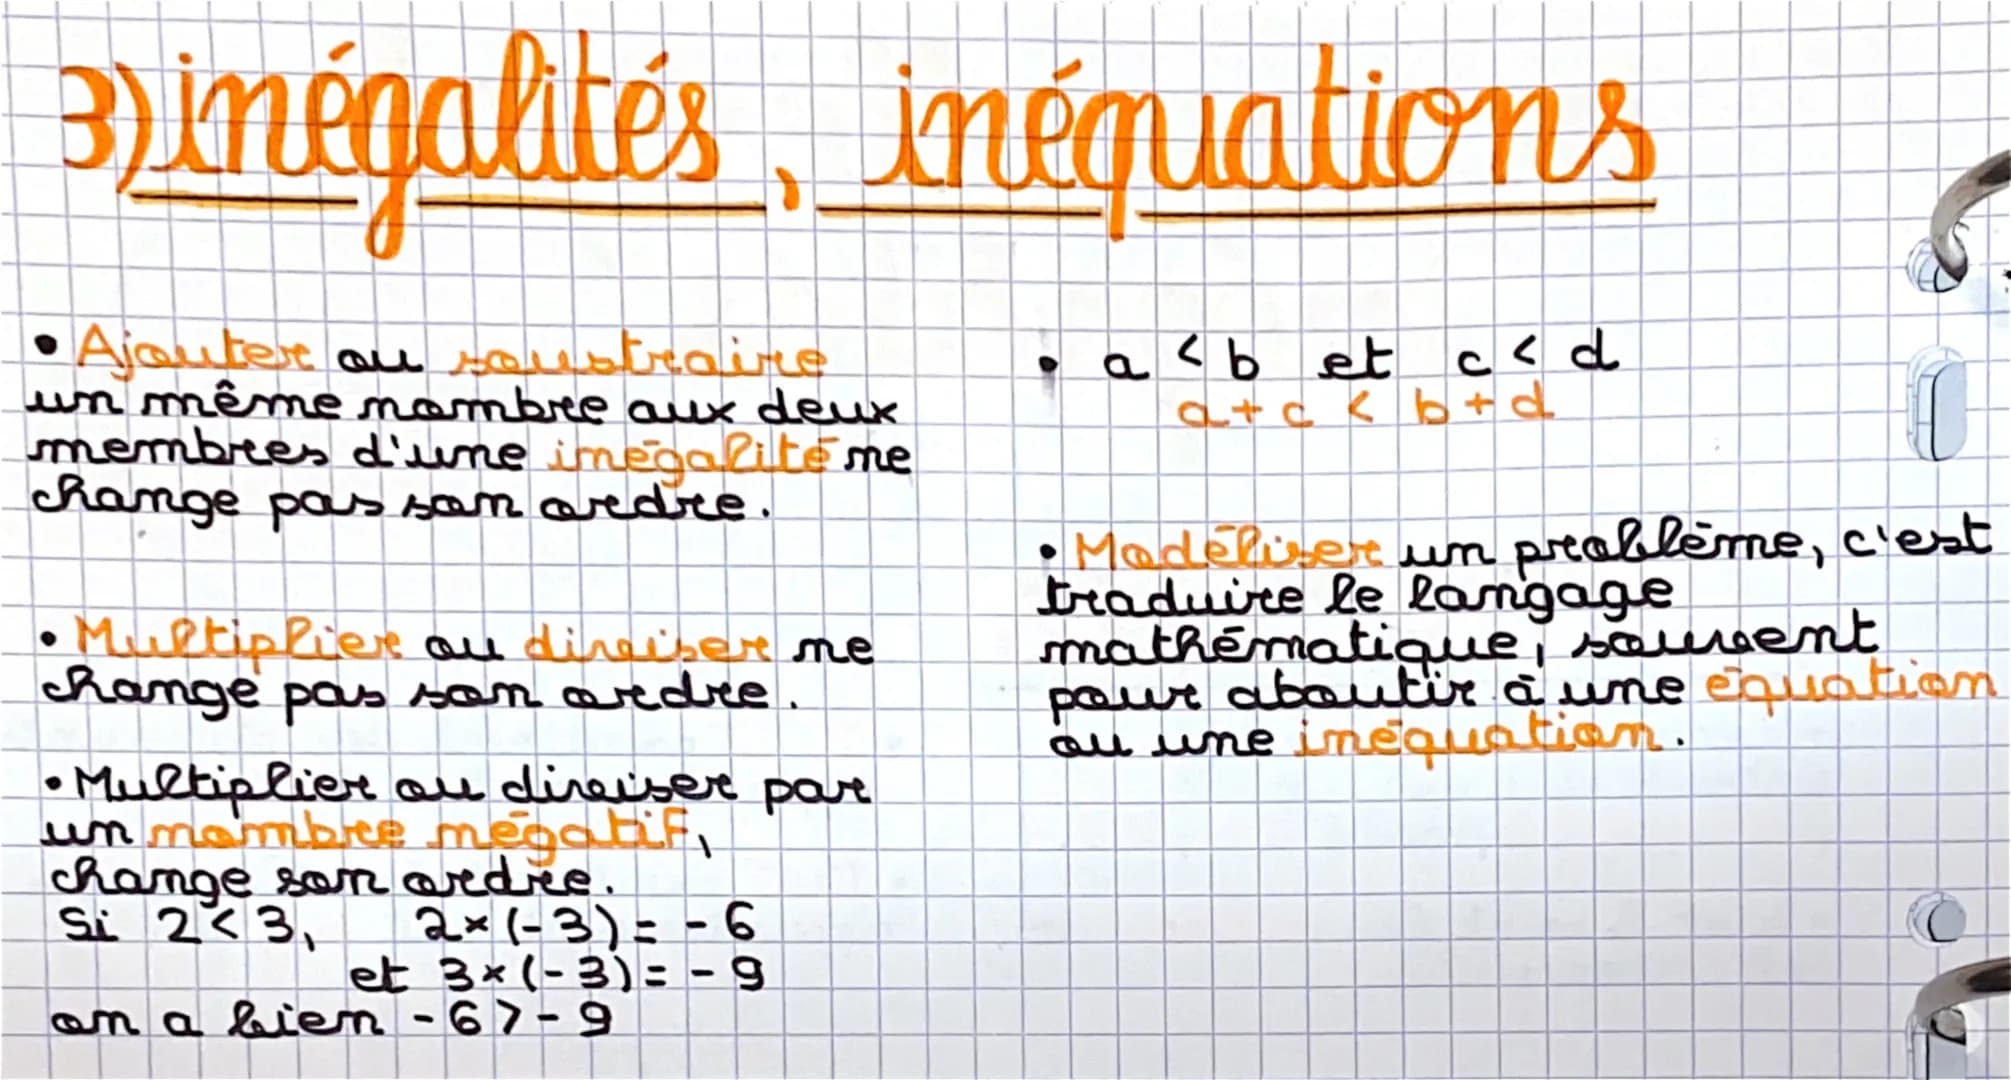 3) inégalités, inéquations
• Ajouter ou soustraire
un même nombre aux deux
membres d'une inégalité ne
change pas son ordre.
• Multiplier ou diviser ne
change pas son ordre.
• Multiplier ou diviser par
un nombre négatif,
change son ordre.
Si 2 < 3, 2×(-3) = -6
et 3×(-3) = -9
on a bien -6 > -9
• a < b et c < d
a + c < b + d
• Modéliser un problème, c'est
traduire le langage
mathématique, souvent
pour aboutir à une équation
ou une inéquation.